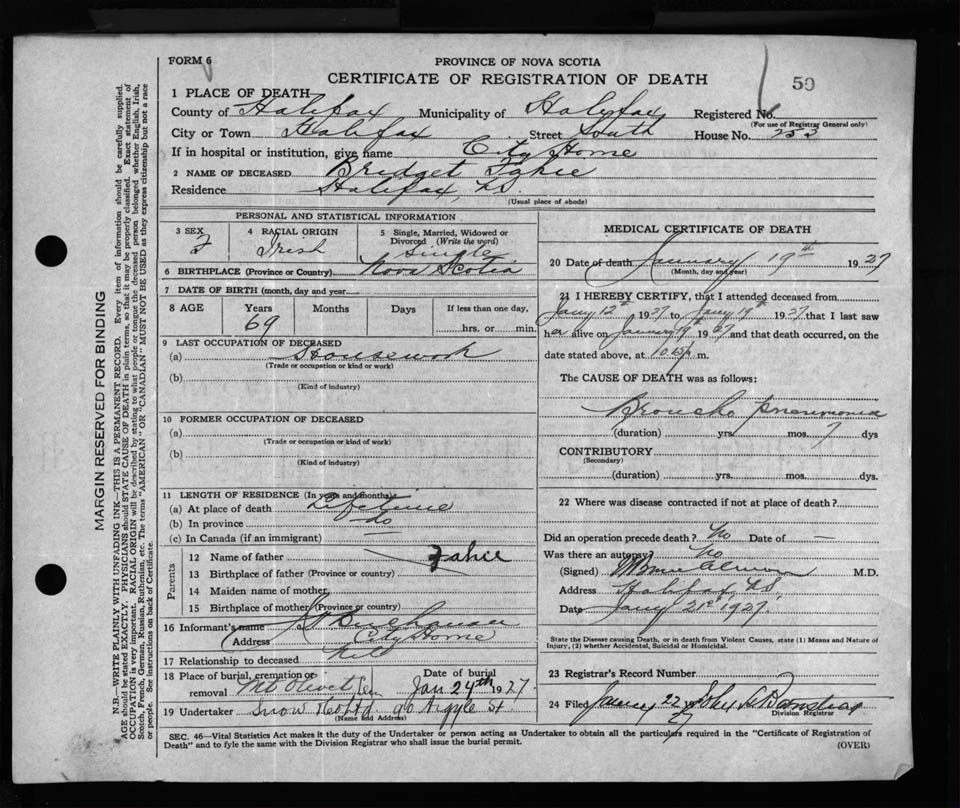 FORM 6
PROVINCE OF NOVA SCOTIA
CERTIFICATE OF REGISTRATION OF DEATH
50
1 PLACE OF DEATH
County of Halifax Municipality of Halifax Registered No.
(For use of Registrar General only)
City or Town Halifax Street South House No. 253
If in hospital or institution, give name City Home
2 NAME OF DECEASED Bridget Fahie
Residence Halifax, N.S.
(Usual place of abode)
PERSONAL AND STATISTICAL INFORMATION
3 SEX 4 RACIAL ORIGIN 5 Single, Married, Widowed or Divorced (Write the word)
F Irish Single
6 BIRTHPLACE (Province or Country) Nova Scotia
7 DATE OF BIRTH (month, day and year)
8 AGE Years Months Days If less than one day,
69 hrs. or min.
9 LAST OCCUPATION OF DECEASED
(a) Housework
(Trade or occupation or kind or work)
(b)
(Kind of industry)
10 FORMER OCCUPATION OF DECEASED
(a)
(Trade or occupation or kind of work)
(b)
(Kind of industry)
11 LENGTH OF RESIDENCE (In years and months)
(a) At place of death Lifetime
(b) In province do
(c) In Canada (if an immigrant) —
Parents
12 Name of father Fahie
13 Birthplace of father (Province or country)
14 Maiden name of mother
15 Birthplace of mother (Province or country)
16 Informant's name
Address City Home
17 Relationship to deceased
18 Place of burial, cremation or removal Mt Olivet Cem Date of burial Jan 24th 1927.
19 Undertaker Snow & Co Ltd 90 Argyle St
(Name and Address)
MEDICAL CERTIFICATE OF DEATH
20 Date of death January 19th 1927
(Month, day and year)
21 I HEREBY CERTIFY, that I attended deceased from
Jany 12th 1927 to Jany 19th 1927 that I last saw
her alive on January 19th 1927 and that death occurred, on the
date stated above, at m.
The CAUSE OF DEATH was as follows:
Broncho pneumonia
(duration) yrs. mos. 7 dys
CONTRIBUTORY
(Secondary)
(duration) yrs. mos. dys.
22 Where was disease contracted if not at place of death?
Did an operation precede death? No Date of —
Was there an autopsy? No
(Signed) Almon M.D.
Address Halifax, N.S.
Date Jany 21st 1927.
State the Disease causing Death, or in death from Violent Causes, state (1) Means and Nature of
Injury, (2) whether Accidental, Suicidal or Homicidal.
23 Registrar's Record Number
24 Filed January 22 27
Division Registrar
SEC. 46—Vital Statistics Act makes it the duty of the Undertaker or person acting as Undertaker to obtain all the particulars required in the "Certificate of Registration of
Death" and to fyle the same with the Division Registrar who shall issue the burial permit.
(OVER)
MARGIN RESERVED FOR BINDING
N.B.—WRITE PLAINLY WITH UNFADING INK—THIS IS A PERMANENT RECORD. Every item of information should be carefully supplied.
AGE should be stated EXACTLY. PHYSICIANS should STATE CAUSE OF DEATH in plain terms, so that it may be properly classified. Exact statement of
OCCUPATION is very important. RACIAL ORIGIN will be described by stating to what people or tongue the deceased person belonged whether English, Irish,
Scotch, French, German, Russian, Ruthenian, etc. The terms "AMERICAN" OR "CANADIAN" MUST NOT BE USED as they express citizenship but not a race
or people. See instructions on back of Certificate.